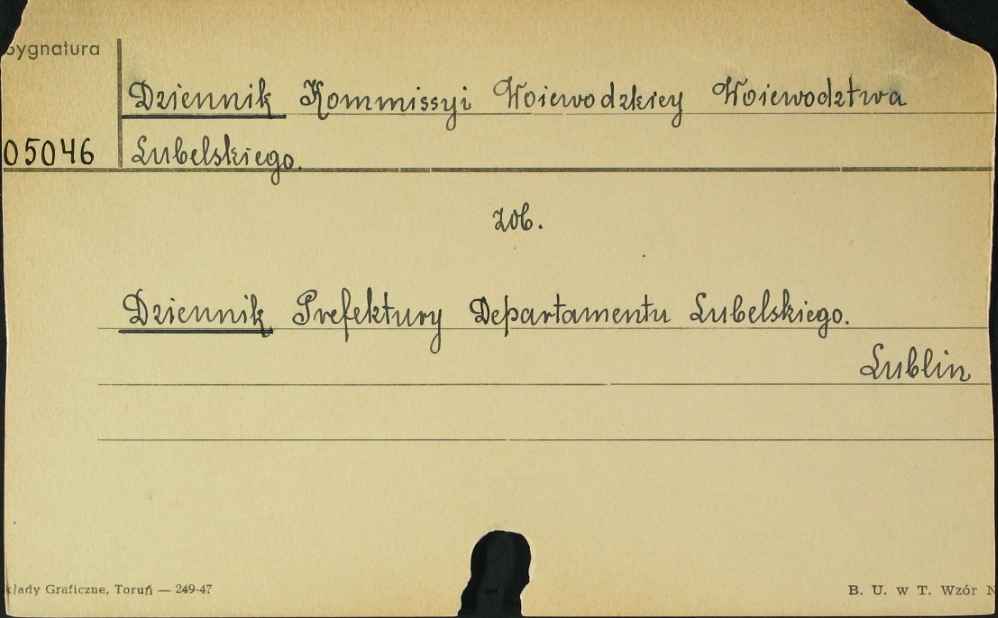 Sygnatura
Dziennik Kommissyi Woiewodzkiey Woiewodztwa
05046 Lubelskiego.
zob.
Dziennik Prefektury Departamentu Lubelskiego.
Lublin
kłady Graficzne, Toruń — 249-47
B. U. w T. Wzór N